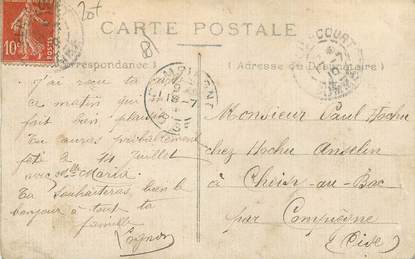 20f
8
CARTE POSTALE
Correspondance)
(Adresse du Destinataire)
10
J'ai reçu ta carte
ce matin qui m'a
fait bien plaisir
Tu auras probablement
fêté le 14 Juillet
avec Mlle Maria
Tu souhaiteras bien le
bonjour à tout ta
famille
Monsieur Paul Hochu
chez Hochu Anselin
à Choisy-au-Bac
par Compiègne
(Oise)